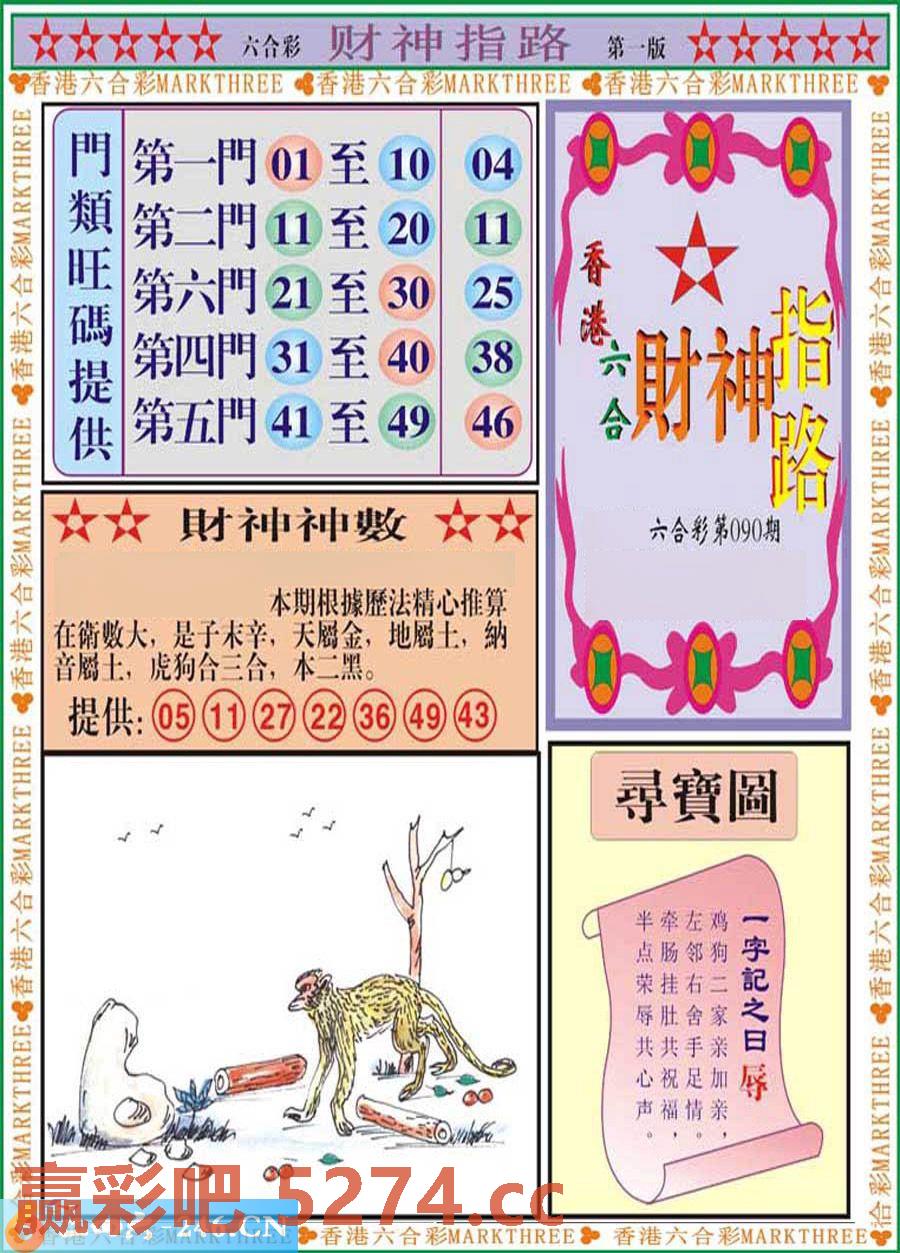 六合彩 财神指路 第一版
香港六合彩MARKTHREE 香港六合彩MARKTHREE 香港六合彩MARKTHREE
門類旺碼提供
第一門 01 至 10 04
第二門 11 至 20 11
第六門 21 至 30 25
第四門 31 至 40 38
第五門 41 至 49 46
香港六合
財神指路
六合彩第090期
財神神數
本期根據歷法精心推算
在衛數大，是子未辛，天屬金，地屬土，納
音屬土，虎狗合三合，本二黑。
提供: 05 11 27 22 36 49 43
尋寶圖
一字記之曰 辱
鸡狗二家亲加亲，
左邻右舍手足情。
牵肠挂肚共祝福，
半点荣辱共心声。
香港六合彩MARKTHREE 香港六合彩MARKTHREE 香港六合彩MARKTHREE
香港六合彩MARKTHREE 香港六合彩MARKTHREE 香港六合彩MARKTHREE
赢彩吧 5274.cc
香港六合彩MARKTHREE 香港六合彩MARKTHREE